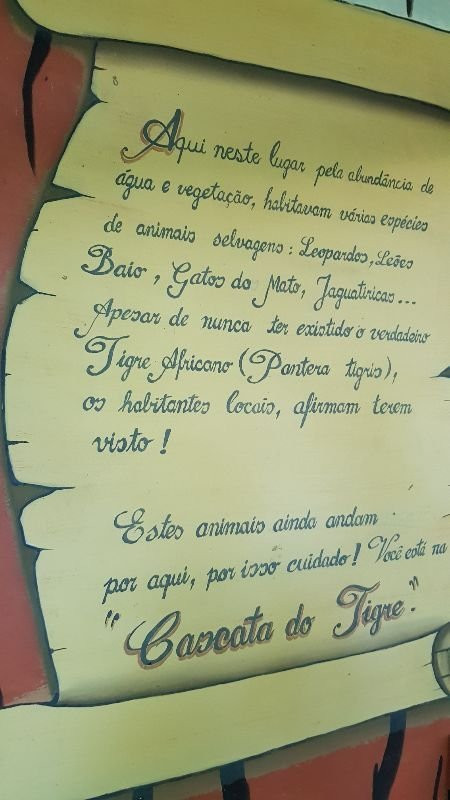 Aqui neste lugar pela abundância de
água e vegetação, habitavam várias espécies
de animais selvagens: Leopardos, Leões
Baio, Gatos do Mato, Jaguatiricas...
Apesar de nunca ter existido o verdadeiro
Tigre Africano (Pantera tigris),
os habitantes locais, afirmam terem
visto!
Estes animais ainda andam
por aqui, por isso cuidado! Você está na
"Cascata do Tigre."